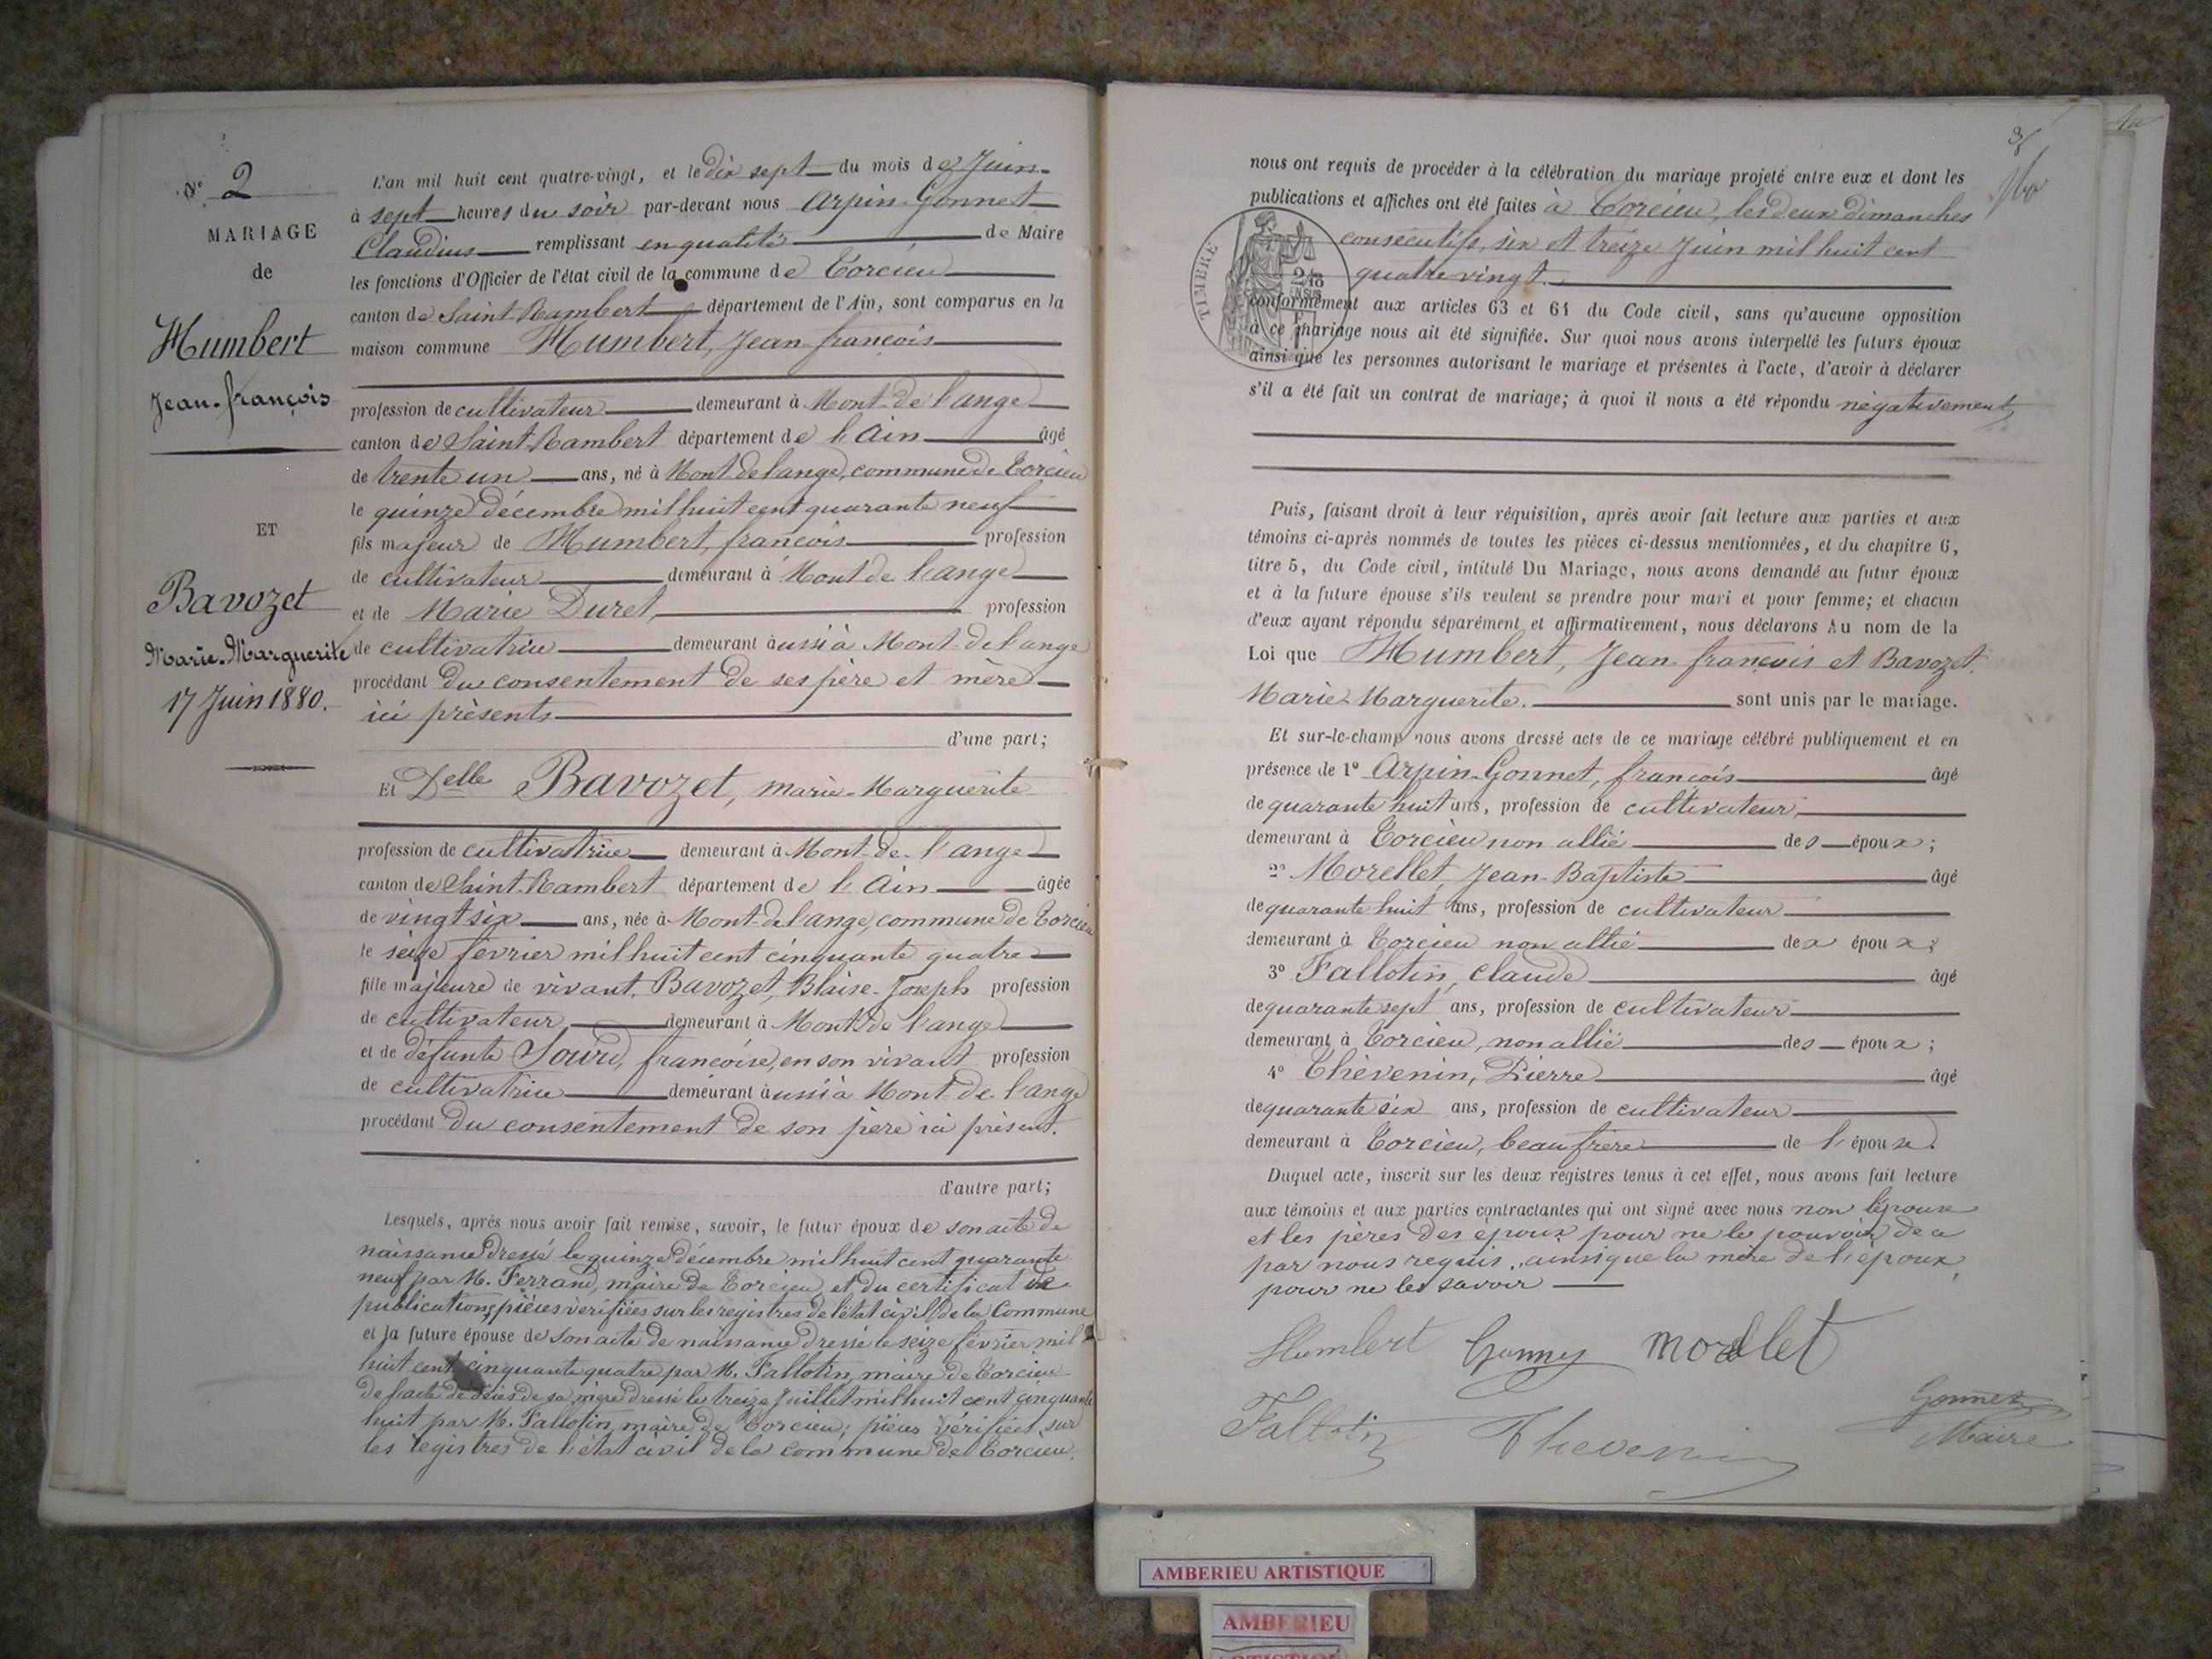 N° 2
MARIAGE
de
Humbert
Jean-françois
ET
Bavozet
Marie-Marguerite
17 Juin 1880.
L'an mil huit cent quatre-vingt, et le dix sept du mois de Juin
à sept heures du soir par-devant nous Arpin-Gonnet
Claudius remplissant en qualité de Maire
les fonctions d'Officier de l'état civil de la commune de Torcieu
canton de Saint-Rambert département de l'Ain, sont comparus en la
maison commune Humbert, Jean-françois
profession de cultivateur demeurant à Mont-de l'ange
canton de Saint-Rambert département de l'Ain âgé
de trente un ans, né à Mont de l'ange, commune de Torcieu
le quinze décembre mil huit cent quarante neuf
fils majeur de Humbert, françois profession
de cultivateur demeurant à Mont de l'ange
et de Marie Duret, profession
de cultivatrice demeurant aussi à Mont-de l'ange
procédant du consentement de ses père et mère
ici présents
d'une part;
Et Delle Bavozet, marie-Marguerite
profession de cultivatrice demeurant à Mont-de-l'ange
canton de Saint-Rambert département de l'Ain âgée
de vingt six ans, née à Mont-de l'ange, commune de Torcieu
le seize février mil huit cent cinquante quatre
fille majeure de vivant, Bavozet, Blaise-Joseph profession
de cultivateur demeurant à Mont de l'ange
et de défunte Sourd, françoise, en son vivant profession
de cultivatrice demeurant aussi à Mont-de-l'ange
procédant du consentement de son père ici présent.
d'autre part;
Lesquels, après nous avoir fait remise, savoir, le futur époux de son acte de
naissance dressé le quinze décembre mil huit cent quarante
neuf par M. Ferrand, maire de Torcieu, et du certificat de
publications, pièces vérifiées sur les registres de l'état civil de la Commune
et la future épouse de son acte de naissance dressé le seize février mil
huit cent cinquante quatre par M. Fallotin, maire de Torcieu
de l'acte de décès de sa mère dressé le treize Juillet mil huit cent cinquante
huit par M. Fallotin, maire de Torcieu; pièces vérifiées sur
les registres de l'état civil de la commune de Torcieu.
3
nous ont requis de procéder à la célébration du mariage projeté entre eux et dont les
publications et affiches ont été faites à Torcieu, les deux dimanches
consécutifs, six et treize Juin mil huit cent
quatre vingt.
TIMBRE
conformément aux articles 63 et 64 du Code civil, sans qu'aucune opposition
à ce mariage nous ait été signifiée. Sur quoi nous avons interpellé les futurs époux
ainsi que les personnes autorisant le mariage et présentes à l'acte, d'avoir à déclarer
s'il a été fait un contrat de mariage; à quoi il nous a été répondu négativement
Puis, faisant droit à leur réquisition, après avoir fait lecture aux parties et aux
témoins ci-après nommés de toutes les pièces ci-dessus mentionnées, et du chapitre 6,
titre 5, du Code civil, intitulé Du Mariage, nous avons demandé au futur époux
et à la future épouse s'ils veulent se prendre pour mari et pour femme; et chacun
d'eux ayant répondu séparément et affirmativement, nous déclarons Au nom de la
Loi que Humbert, Jean-françois et Bavozet.
Marie-Marguerite. sont unis par le mariage.
Et sur-le-champ nous avons dressé acte de ce mariage célébré publiquement et en
présence de 1° Arpin-Gonnet, françois âgé
de quarante huit ans, profession de cultivateur,
demeurant à Torcieu non allié des époux;
2° Morellet, Jean-Baptiste âgé
de quarante huit ans, profession de cultivateur
demeurant à Torcieu non allié des époux;
3° Fallotin, claude âgé
de quarante sept ans, profession de cultivateur
demeurant à Torcieu, non allié des époux;
4° Thévenin, Pierre âgé
de quarante six ans, profession de cultivateur
demeurant à Torcieu, beau frère de l'épouse.
Duquel acte, inscrit sur les deux registres tenus à cet effet, nous avons fait lecture
aux témoins et aux parties contractantes qui ont signé avec nous non l'épouse
et les pères des époux pour ne le pouvoir de ce
par nous requis, ainsi que la mère de l'époux
pour ne le savoir
Humbert Morellet
Fallotin Thevenin
Gonnet
Maire
AMBERIEU ARTISTIQUE
AMBERIEU
ARTISTIQUE